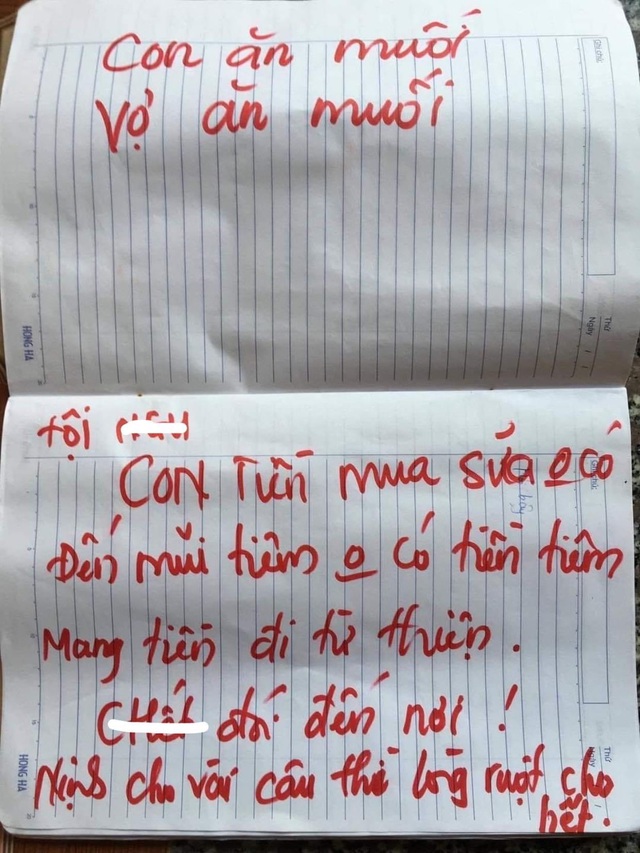 Con ăn muối
Vợ ăn muối
Ghi chú:
Thứ
Ngày / /
HONG HA
tội
CON Tiền mua sữa o có
Đến mũi tiêm o có tiền tiêm
Mang tiền đi từ thiện.
đó đến nơi !
Nịnh cho vài câu thì lòng ruột cho
hết.
Thứ
HONG HA